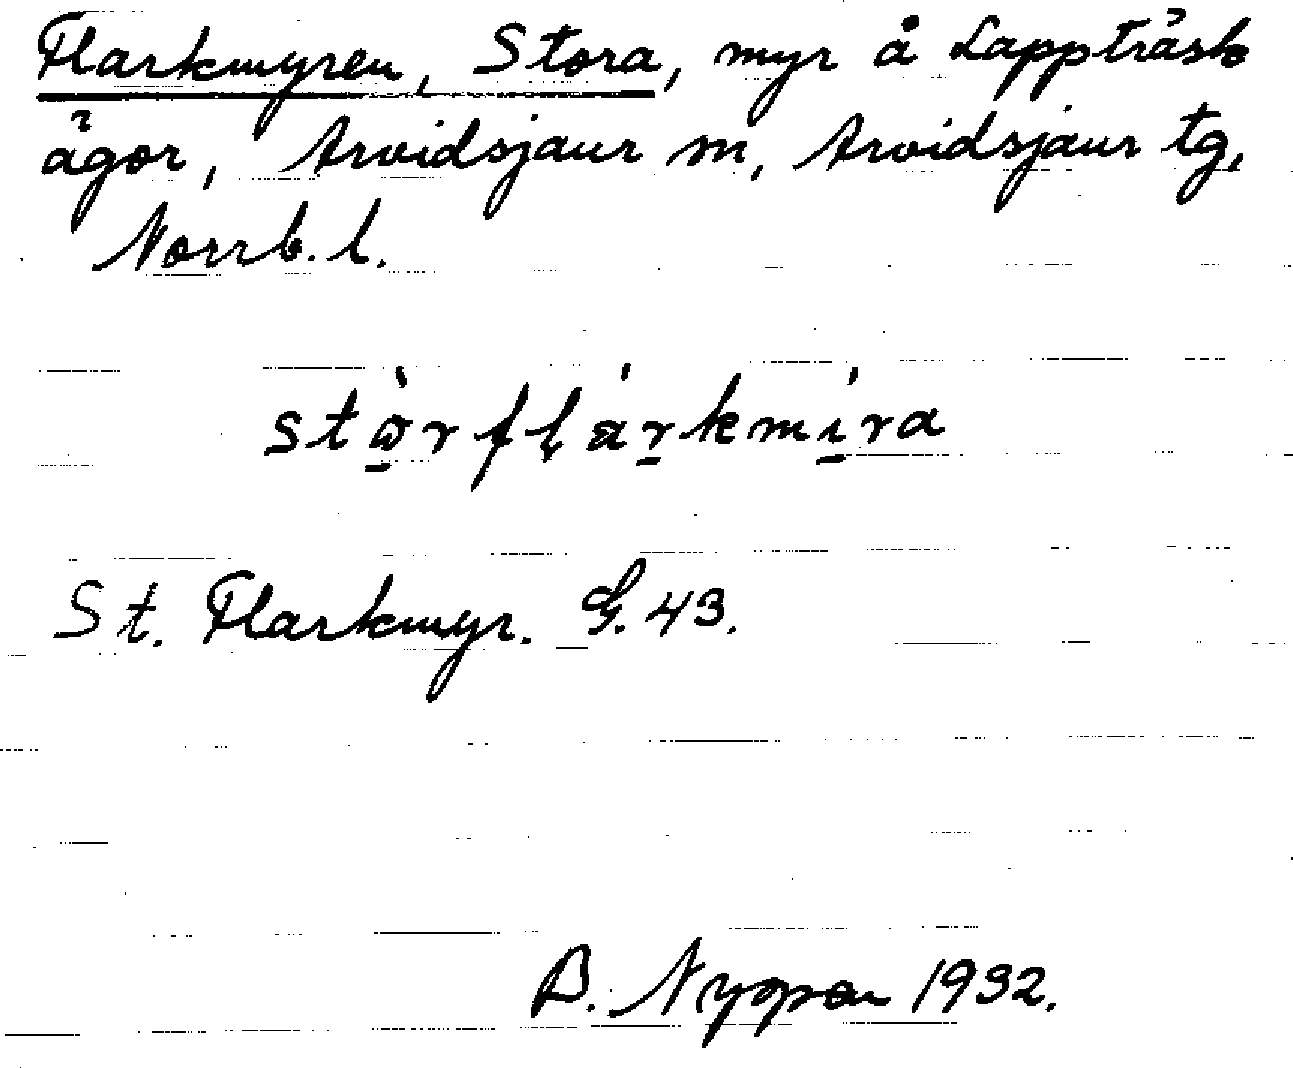 Flarkmyren, Stora, myr å Lappträsk
ägor, Arvidsjaur sn, Arvidsjaur tg,
Norrb. l.
St. Flarkmyr. G. 43.
B. Nypan 1932.